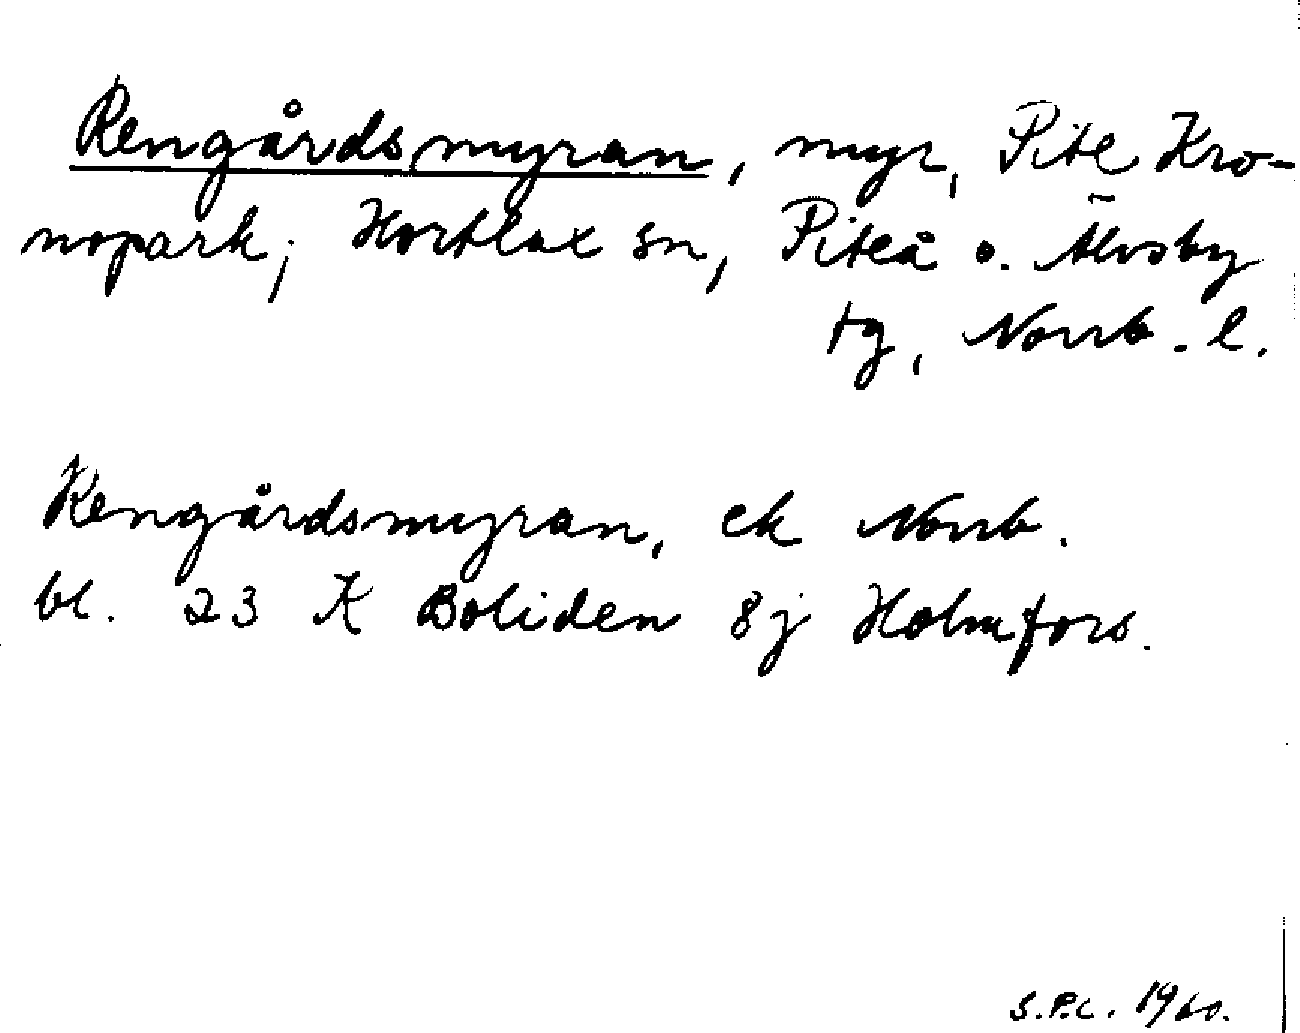 Rengårdsmyran, myr, Pite Kro-
nopark; Hortlax sn, Piteå o. Älvsby
tg, Norrb. l.
Rengårdsmyran, ek Norrb.
bl. 23 K Boliden 8j Holmfors.
S.P.C. 1960.